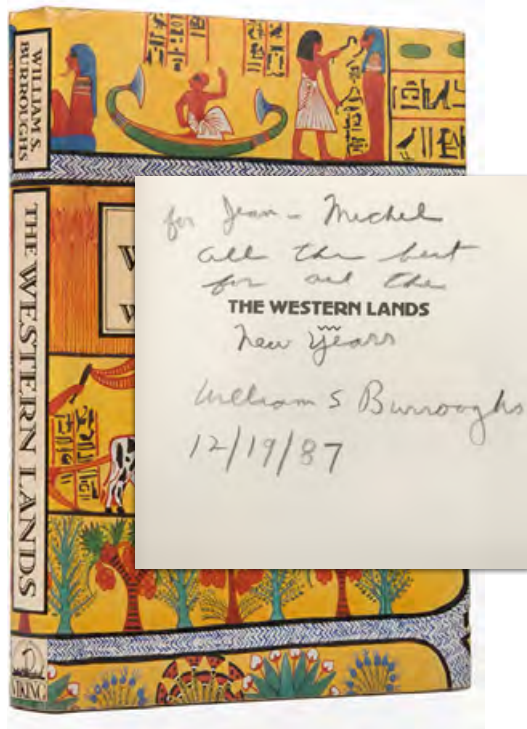 WILLIAM S.
BURROUGHS
THE WESTERN LANDS
VIKING
for Jean-Michel
all the best
for all the
THE WESTERN LANDS
New Years
William S Burroughs
12/19/87